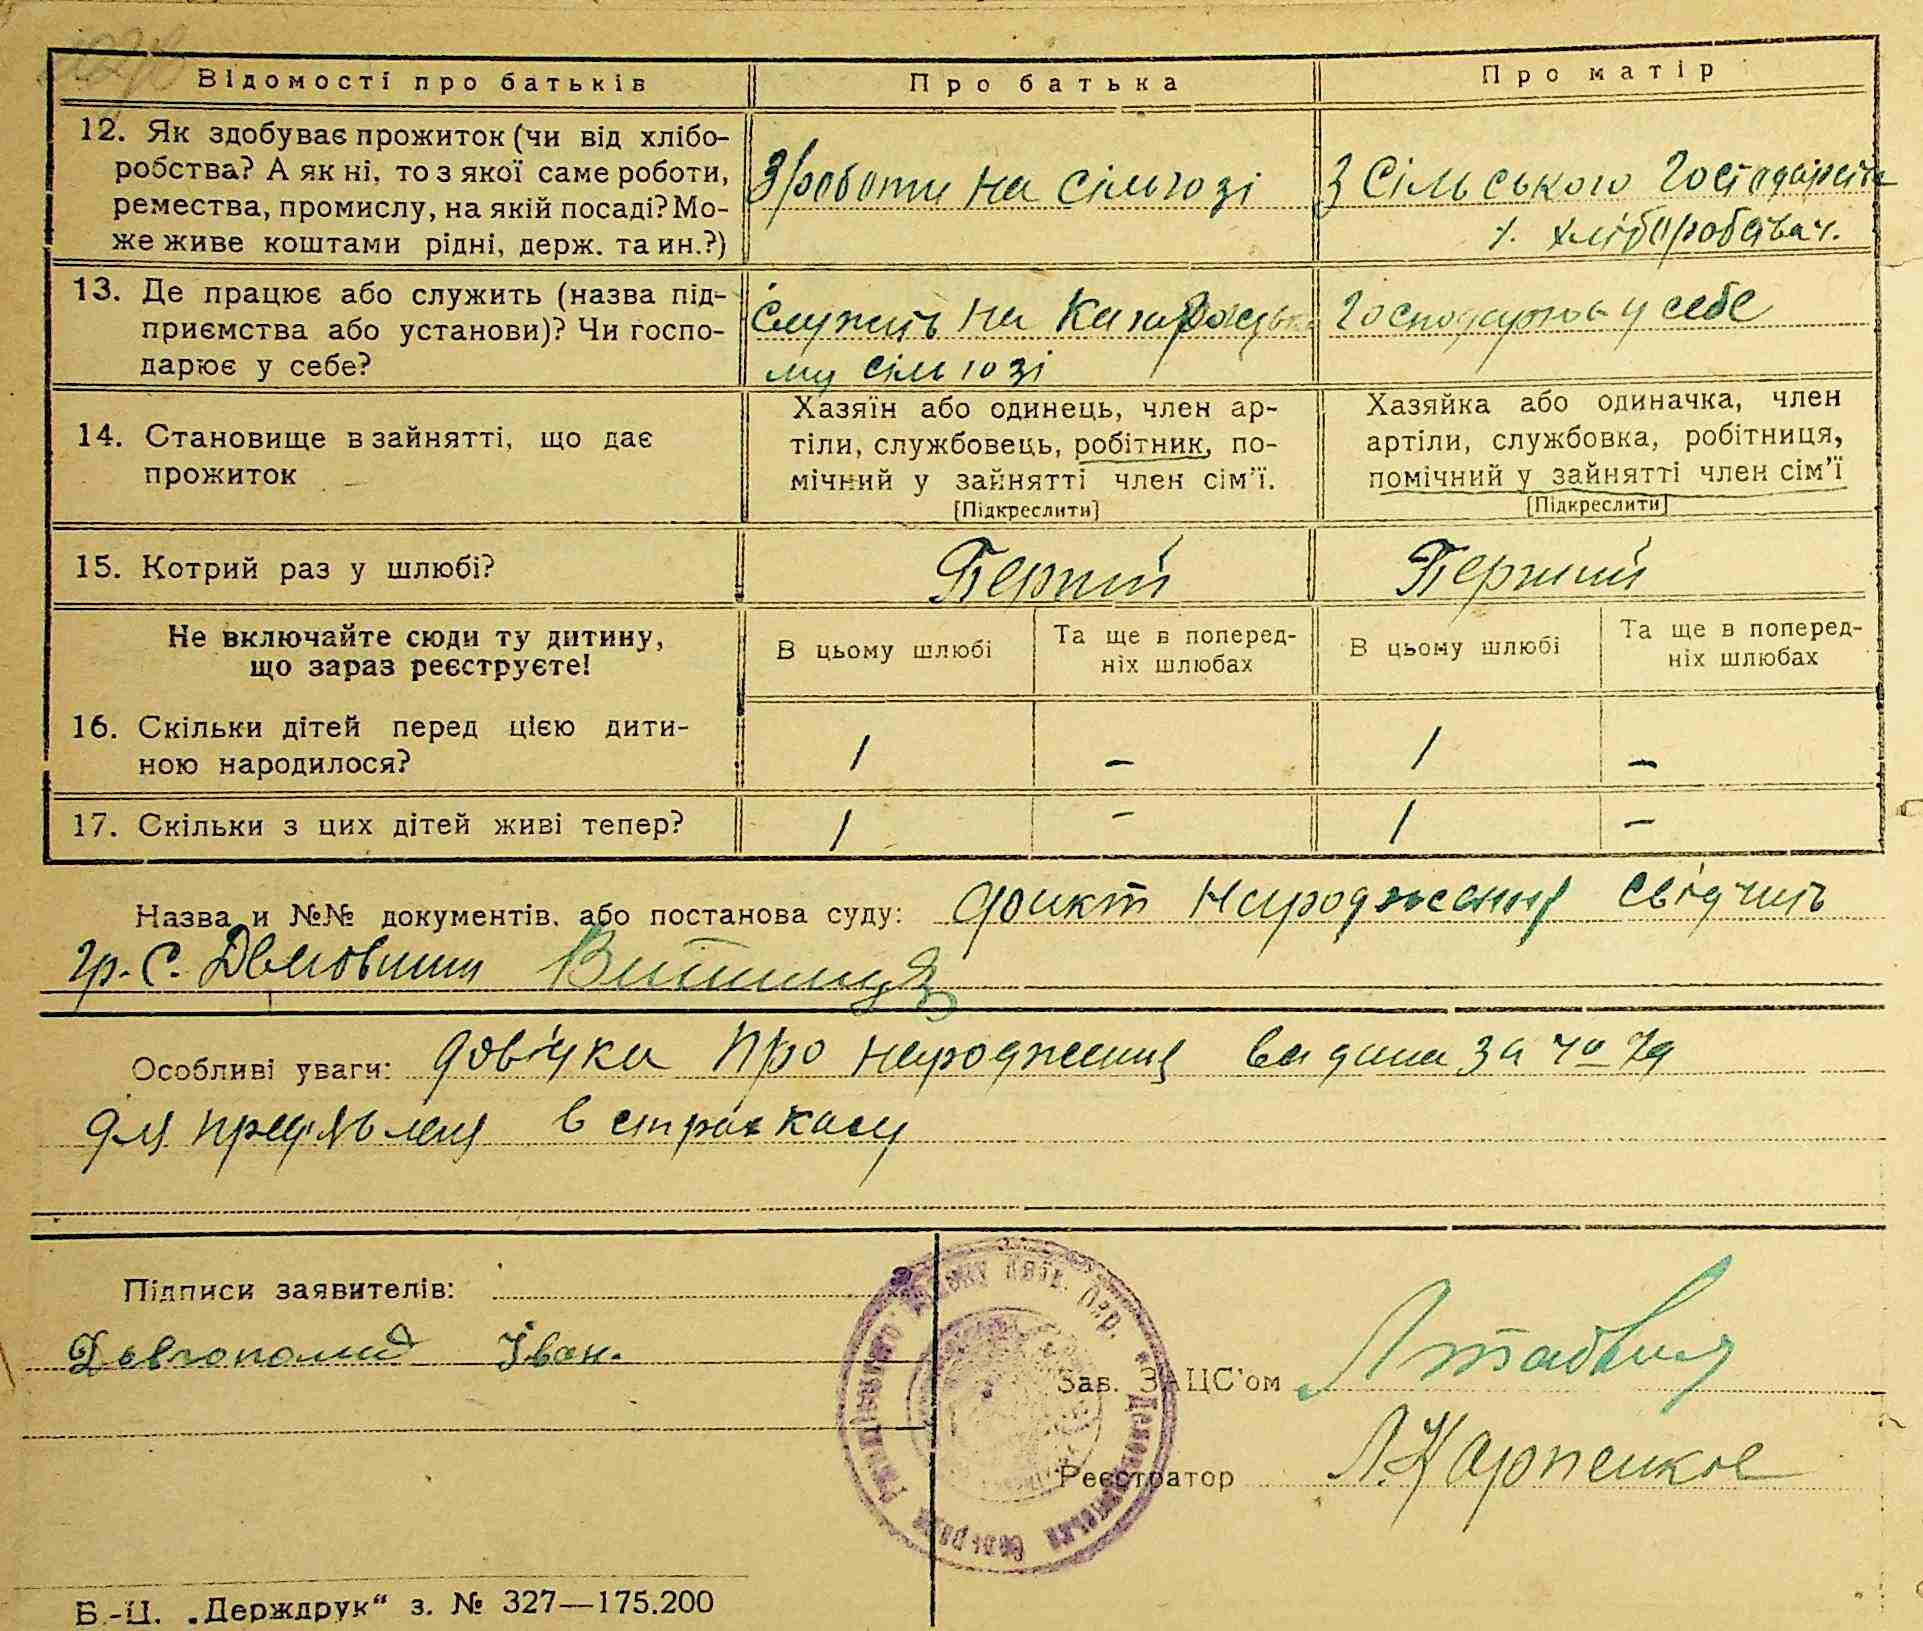 Відомості про батьків
Про батька
Про матір
12. Як здобуває прожиток (чи від хлібо-
робства? А як ні, то з якої саме роботи,
ремества, промислу, на якій посаді? Мо-
же живе коштами рідні, держ. та ин.?)
З роботи на сільгозі
З сільського господарств
13. Де працює або служить (назва під-
приємства або установи)? Чи госпо-
дарює у себе?
служить на
му сільгозі
у себе
14. Становище в зайнятті, що дає
прожиток
Хазяїн або одинець, член ар-
тіли, службовець, робітник, по-
мічний у зайнятті член сім'ї.
[Підкреслити]
Хазяйка або одиначка, член
артіли, службовка, робітниця,
помічний у зайнятті член сім'ї
[Підкреслити]
15. Котрий раз у шлюбі?
Перший
Перший
Не включайте сюди ту дитину,
що зараз реєструєте!
В цьому шлюбі
Та ще в поперед-
ніх шлюбах
В цьому шлюбі
Та ще в поперед-
ніх шлюбах
16. Скільки дітей перед цією дити-
ною народилося?
1
–
1
–
17. Скільки з цих дітей живі тепер?
1
–
1
–
Назва и №№ документів, або постанова суду: факт народження свідчить
гр. с.
Особливі уваги: довідка про народження видана за
для в страхкасу
Підписи заявителів:
Довгополий Іван.
Зав. ЗАЦС'ом
Реєстратор Л. Карпенко
Б.-Ц. „Держдрук“ з. № 327—175.200